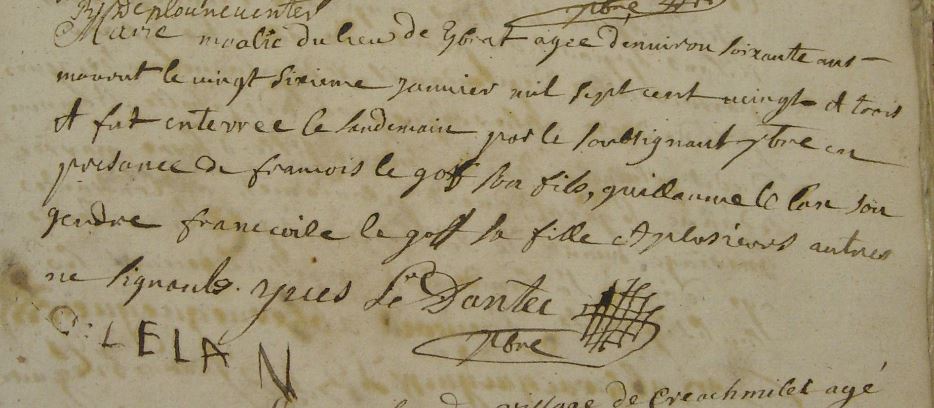 De plouneventer
ptre
Marie moalic du lieu de agee denuiron soixante ans
mourut le uingt sixieme Januier mil sept cent uingt et trois
et fut enterree le landemain par le soubsignant ptre en
presance de francois le goff son fils, guillaume le lan son
gendre francoise le goff sa fille et plusieurs autres
ne signants. yues Le Dantec
ptre
G: LE LAN
village de Creachmiler agé